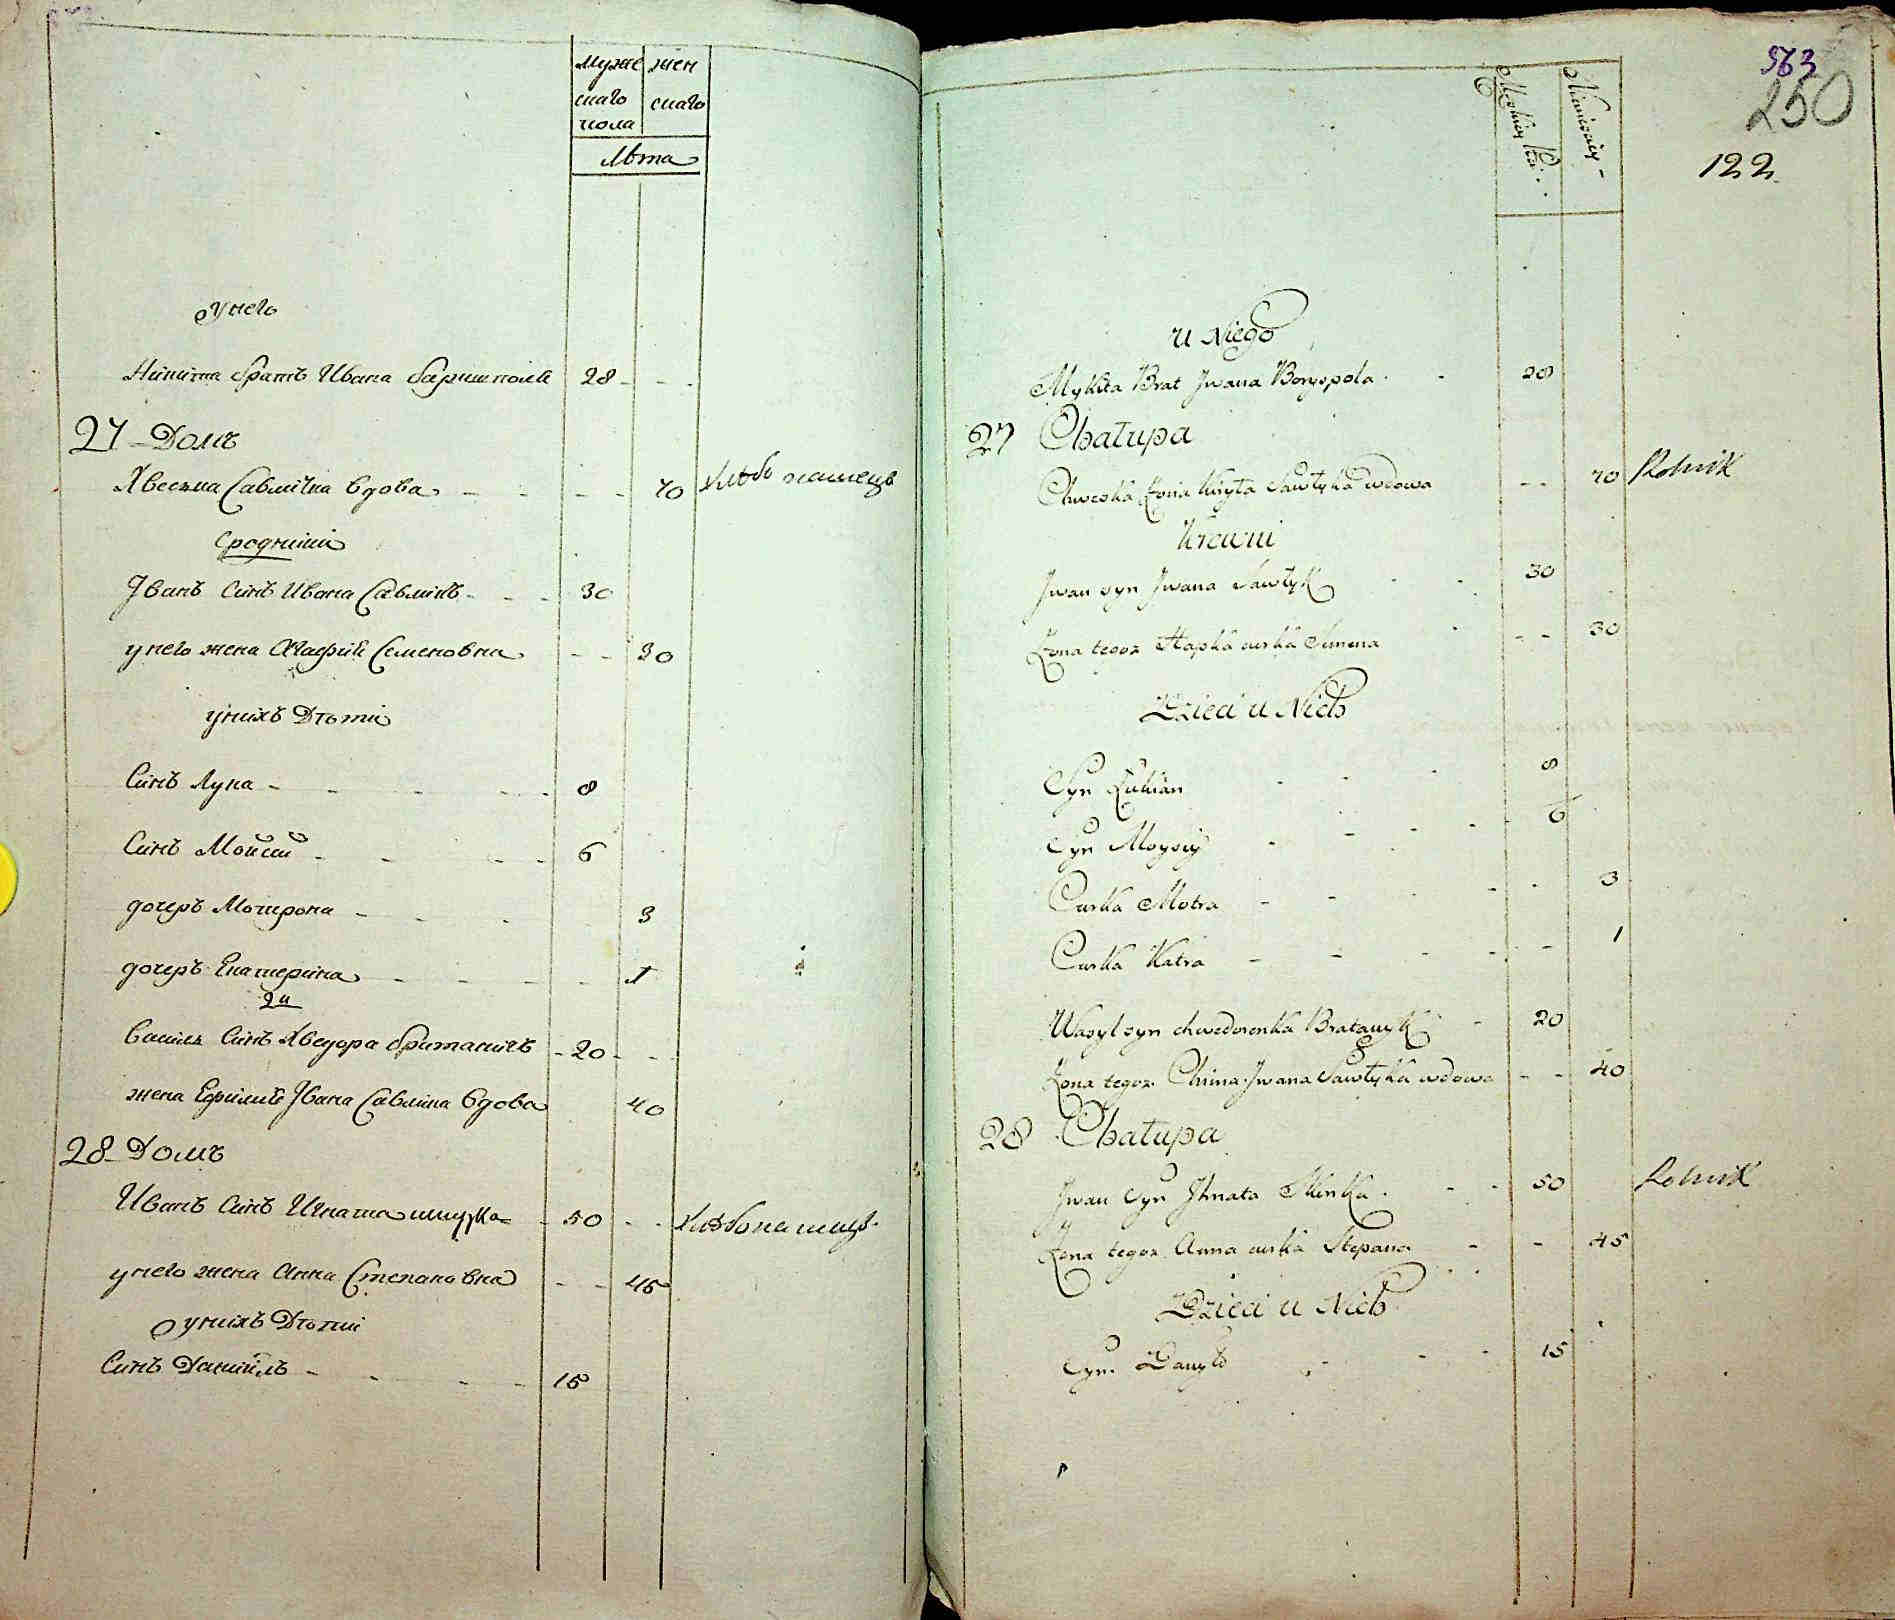 муже жен
скаго скаго
пола
лѣта
у него
Никита братъ Ивана Баришполя 28 - - -
27 Домъ
Хвеска Савлучка вдова - - - - 70 хлѣбопашецъ
Сродники
Іванъ Синъ Ивана Савлукъ - - - 30
у него жена Агафия Семеновна - - 30
у нихъ Дѣти
Синъ Лука - - - - - 8
Синъ Мойсий - - - - 6
дочеръ Мотрона - - - 3
дочеръ Екатерина - - - - - 1
2й
Василь Синъ Хведора братаничъ - 20 - -
жена Ефимия Івана Савлука вдова 40
28 Домъ
Иванъ Синъ Игната - 50 - - хлѣбопашецъ
у него жена Анна Степановна - - 45
у нихъ Дѣти
Синъ Даниилъ - - - - 15
563
250
122
Męskiey
Niewiesciey
u Niego
Mykita Brat Jwana Boryspola - 28
27 Chałupa
Chweska Żona Kiryła Sawłyka wdowa - - 70 Rolnik
Krewni
Jwan syn Jwana Sawłyk - - 30
Żona tegoż Hapka curka Semena - - 30
Dzieci u Nich
Syn Łukian - - - 8
Syn Moysiy - - - - - 6
Curka Motra - - - - - 3
Curka Katra - - - - - 1
Wasyl syn chwedorenka Bratanyk - 20
Żona tegoż Chima Jwana Sawłyka wdowa - - 40
28 Chałupa
Jwan Syn Jhnata - - 50 Rolnik
Żona tegoż Anna curka Stepana - - 45
Dzieci u Nich
Syn Danyło - - - 15